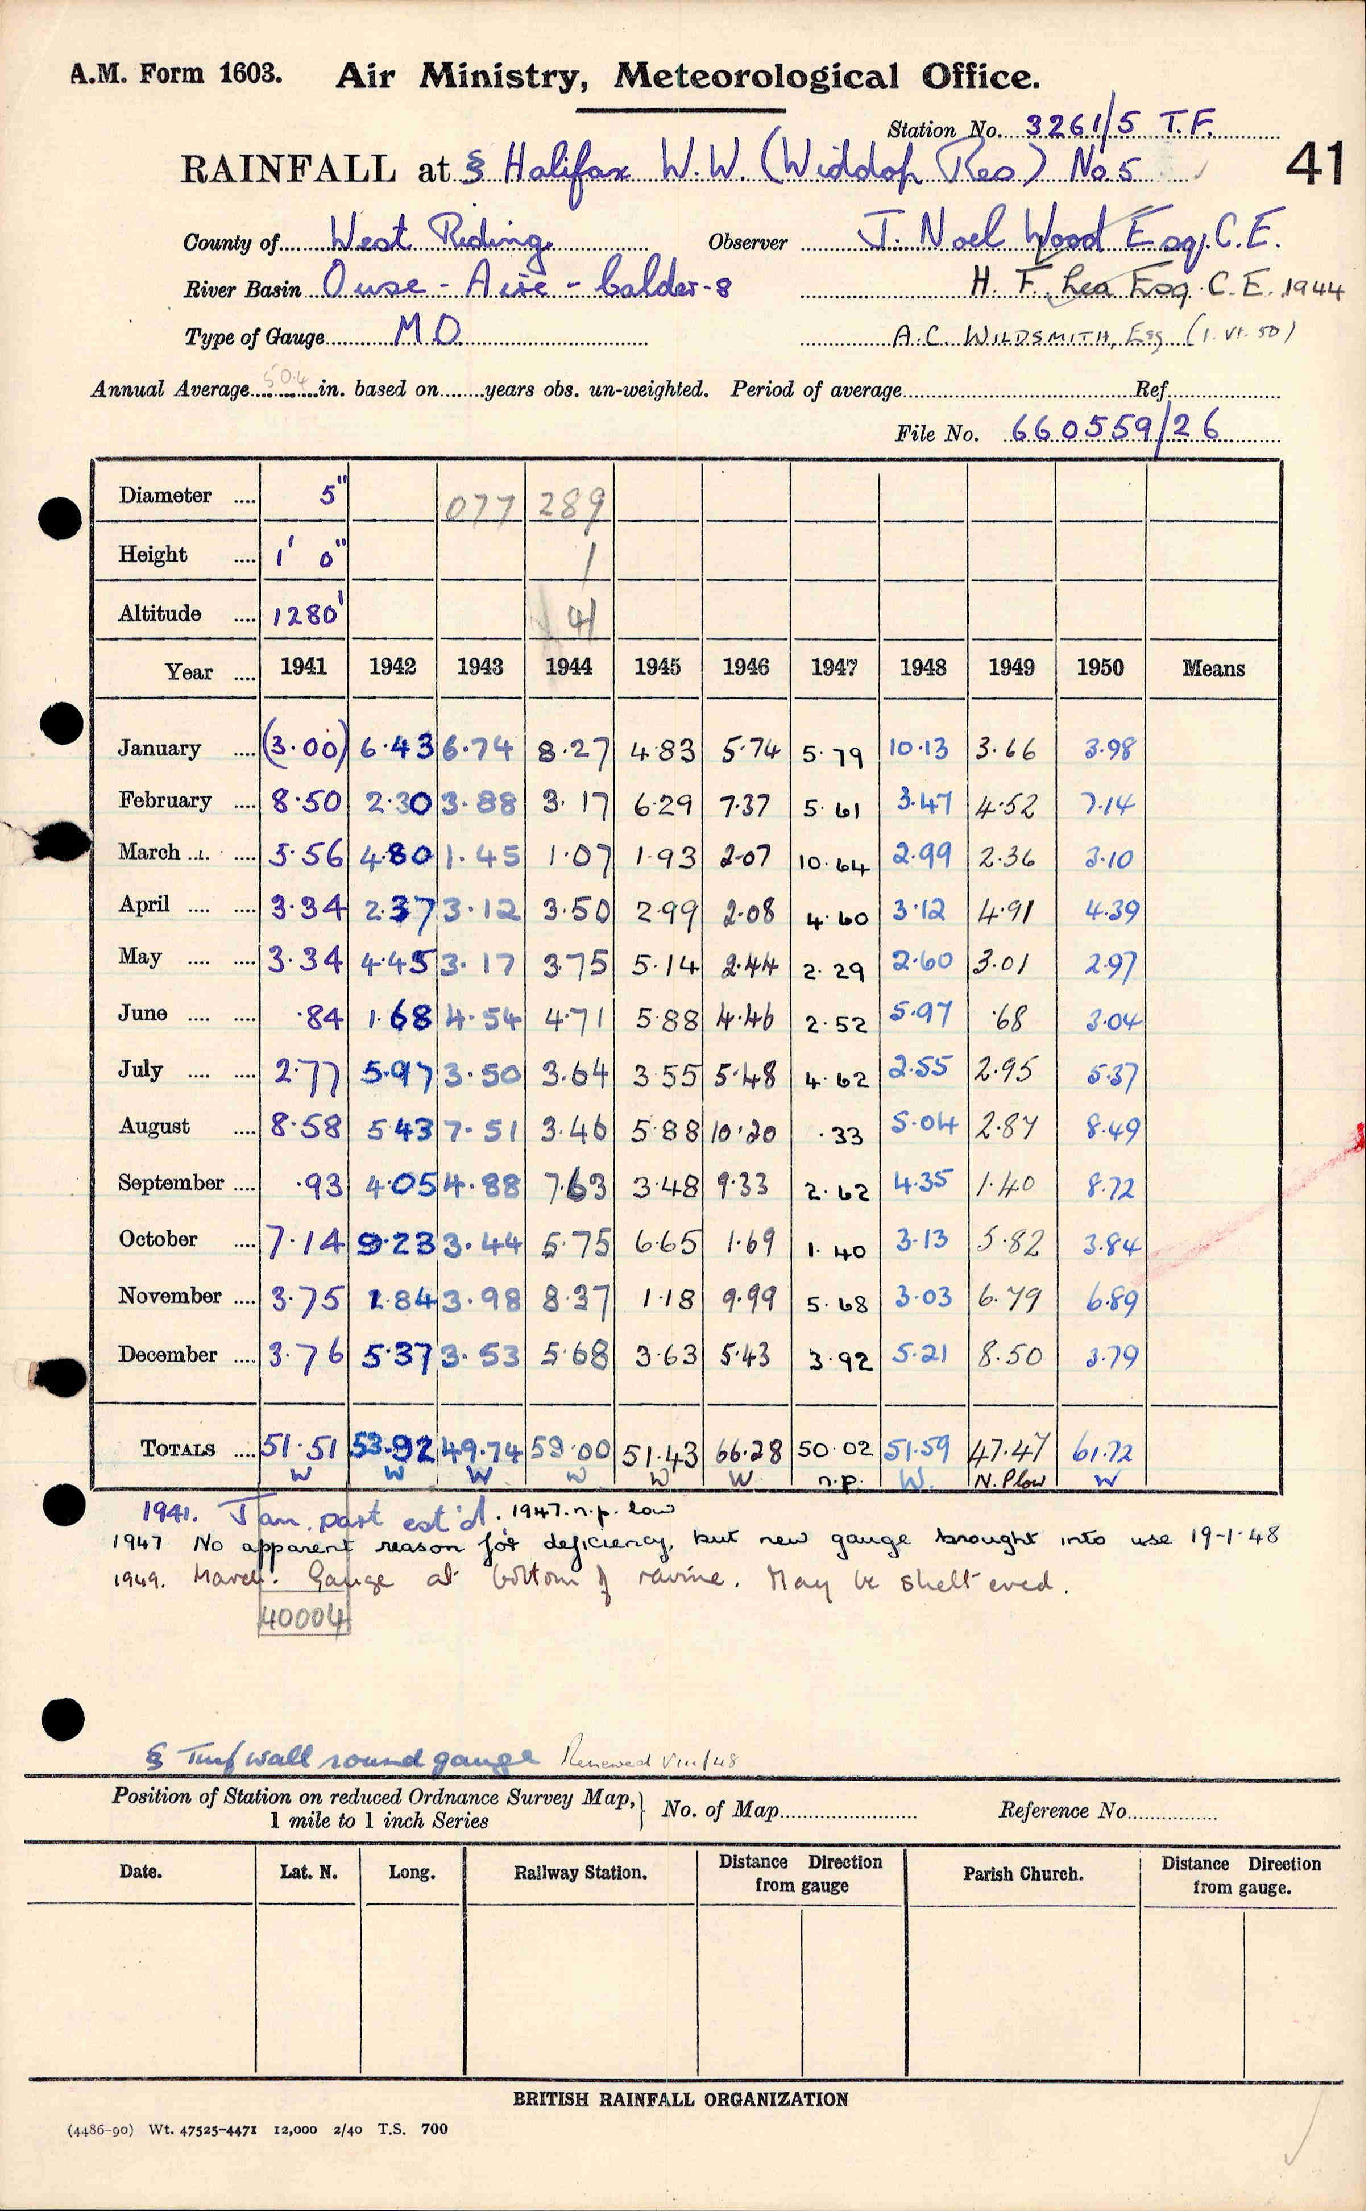 A.M. Form 1603. Air Ministry, Meteorological Office.
Station No. 3261/5 T.F.
41
RAINFALL at § Halifax W.W. (Widdop Res) No. 5
County of West Riding Observer J. Noel Wood Esq. C.E.
River Basin Ouse - Aire - Calder-8 H. F. Lea Esq. C.E. 1944
Type of Gauge MO A.C. WILDSMITH, Esq (1.VI.50)
Annual Average 50.4 in. based on years obs. un-weighted. Period of average Ref
File No. 660559/26
Diameter 5" 077 289
Height 1' 0" 1
Altitude 1280' 41
Year 1941 1942 1943 1944 1945 1946 1947 1948 1949 1950 Means
January (3.00) 6.43 6.74 8.27 4.83 5.74 5.79 10.13 3.66 3.98
February 8.50 2.30 3.88 3.17 6.29 7.37 5.61 3.47 4.52 7.14
March 5.56 4.80 1.45 1.07 1.93 2.07 10.64 2.99 2.36 3.10
April 3.34 2.37 3.12 3.50 2.99 2.08 4.60 3.12 4.91 4.39
May 3.34 4.45 3.17 3.75 5.14 2.44 2.29 2.60 3.01 2.97
June .84 1.68 4.54 4.71 5.88 4.46 2.52 5.97 .68 3.04
July 2.77 5.97 3.50 3.64 3.55 5.48 4.62 2.55 2.95 5.37
August 8.58 5.43 7.51 3.46 5.88 10.20 .33 5.04 2.87 8.49
September .93 4.05 4.88 7.63 3.48 9.33 2.62 4.35 1.40 8.72
October 7.14 9.23 3.44 5.75 6.65 1.69 1.40 3.13 5.82 3.84
November 3.75 1.84 3.98 8.37 1.18 9.99 5.68 3.03 6.79 6.89
December 3.76 5.37 3.53 5.68 3.63 5.43 3.92 5.21 8.50 3.79
TOTALS 51.51 53.92 49.74 59.00 51.43 66.28 50.02 51.59 47.47 61.72
W W W W W W n.p. W. N.P low W
1941. Jan. part est'd. 1947. n.p. low
1947 No apparent reason for deficiency, but new gauge brought into use 19-1-48
1949. March. Gauge at bottom of ravine. May be sheltered.
40004
§ Turf wall round gauge Renewed VIII/48
Position of Station on reduced Ordnance Survey Map, 1 mile to 1 inch Series } No. of Map Reference No.
Date. Lat. N. Long. Railway Station. Distance Direction from gauge Parish Church. Distance Direction from gauge.
BRITISH RAINFALL ORGANIZATION
(4486-90) Wt. 47525-4471 12,000 2/40 T.S. 700